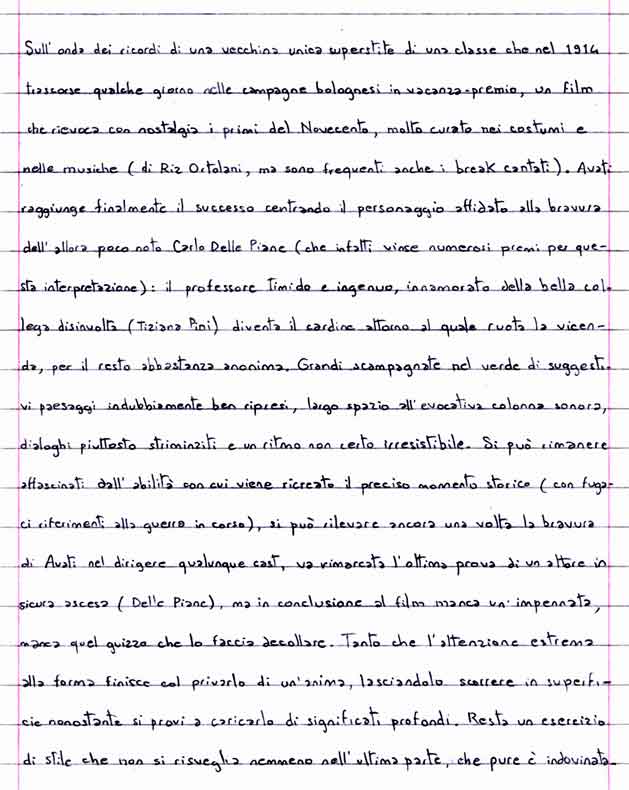 Sull' onda dei ricordi di una vecchina unica superstite di una classe che nel 1914
trascorse qualche giorno nelle campagne bolognesi in vacanza-premio, un film
che rievoca con nostalgia i primi del Novecento, molto curato nei costumi e
nelle musiche (di Riz Ortolani, ma sono frequenti anche i break cantati). Avati
raggiunge finalmente il successo centrando il personaggio affidato alla bravura
dell' allora poco noto Carlo Delle Piane (che infatti vinse numerosi premi per que-
sta interpretazione): il professore timido e ingenuo, innamorato della bella col-
lega disinvolta (Tiziana Pini) diventa il cardine attorno al quale ruota la vicen-
da, per il resto abbastanza anonima. Grandi scampagnate nel verde di suggesti-
vi paesaggi indubbiamente ben ripresi, largo spazio all' evocativa colonna sonora,
dialoghi piuttosto striminziti e un ritmo non certo irresistibile. Si può rimanere
affascinati dall' abilità con cui viene ricreato il preciso momento storico (con fuga-
ci riferimenti alla guerra in corso), si può rilevare ancora una volta la bravura
di Avati nel dirigere qualunque cast, va rimarcata l'ottima prova di un attore in
sicura ascesa (Delle Piane), ma in conclusione al film manca un' impennata,
manca quel guizzo che lo faccia decollare. Tanto che l'attenzione estrema
alla forma finisce col privarlo di un'anima, lasciandolo scorrere in superfi-
cie nonostante si provi a caricarlo di significati profondi. Resta un esercizio
di stile che non si risveglia nemmeno nell' ultima parte, che pure è indovinata.